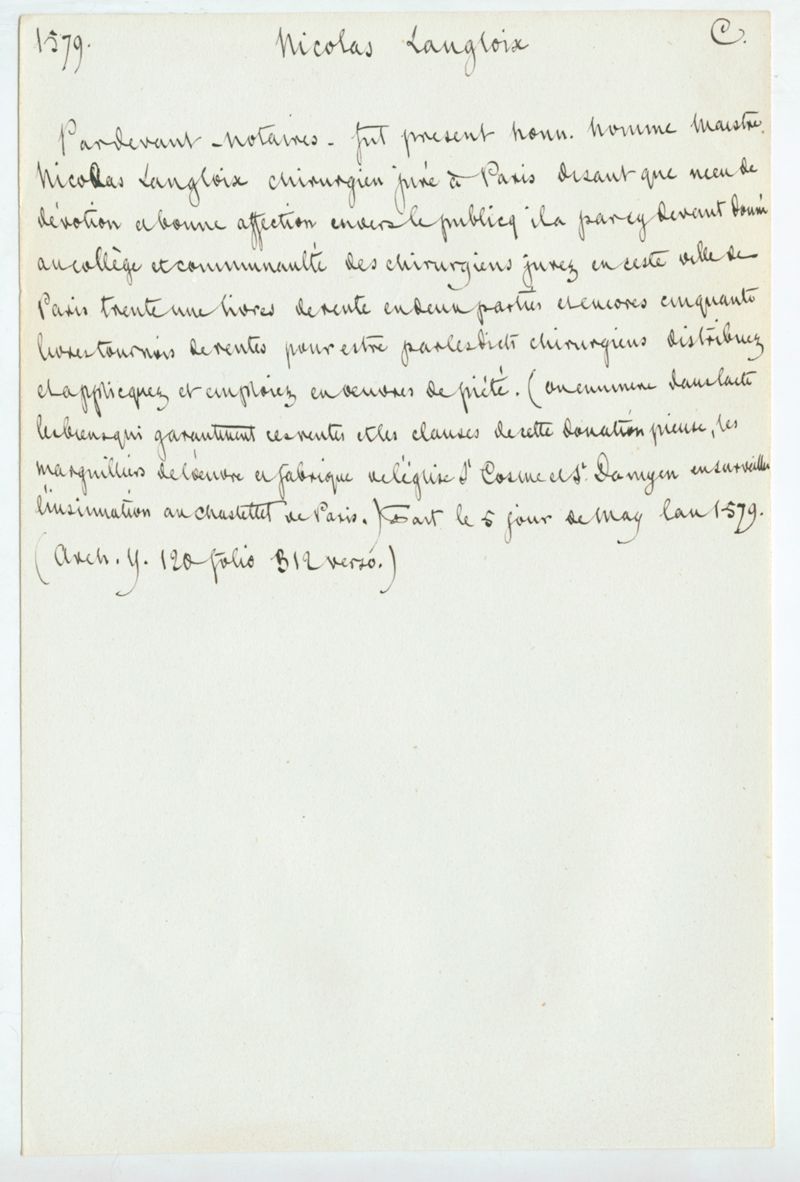 1579. Nicolas Langloix C.
Pardevant - notaires - fut present honn. homme Maistre
Nicolas Langloix chirurgien juré à Paris disant que meu de
dévotion et bonne affection envers le publicq il a par cy devant donné
au collège et communaulté des chirurgiens jurez en ceste ville de
Paris trente une livres de rente en deux parties et encores cinquante
livres tournois de rentes pour estre par lesdicts chirurgiens distribuez
et applicquez et emploiez en oeuvres de piété. (on enumere dans l'acte
les biens qui garantissent ces rentes et les clauses de cette donation pieuse, les
marguilliers de l'oeuvre et fabrique de l'église St Cosme et St. Damyen en surveille
l'insinuation au chastellet de Paris.) Fait le 5 jour de May lan 1579.
(Arch. Y. 120 folio 312 verso.)